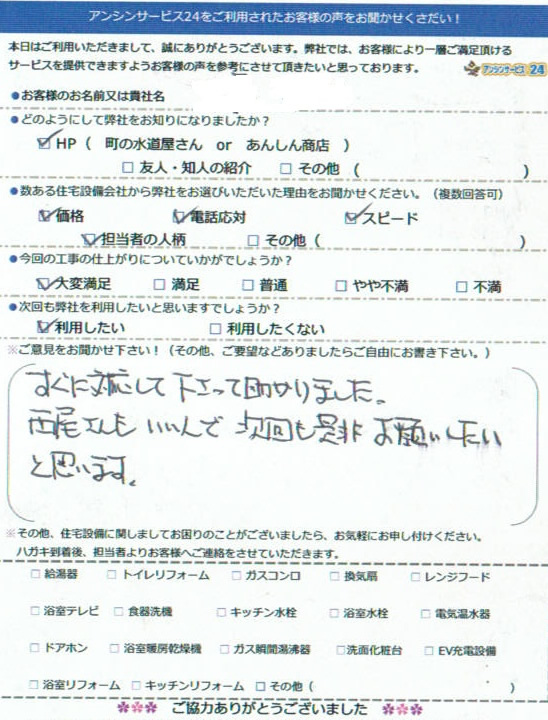 アンシンサービス24をご利用されたお客様の声をお聞かせください！
本日はご利用いただきまして、誠にありがとうございます。弊社では、お客様により一層ご満足頂ける
サービスを提供できますようお客様の声を参考にさせて頂きたいと思っております。
アンシンサービス24
●お客様のお名前又は貴社名
●どのようにして弊社をお知りになりましたか？
☑HP（ 町の水道屋さん or あんしん商店 ）
□友人・知人の紹介 □その他（ ）
●数ある住宅設備会社から弊社をお選びいただいた理由をお聞かせください。（複数回答可）
☑価格 ☑電話応対 ☑スピード
☑担当者の人柄 □その他（ ）
●今回の工事の仕上がりについていかがでしょうか？
☑大変満足 □満足 □普通 □やや不満 □不満
●次回も弊社を利用したいと思いますでしょうか？
☑利用したい □利用したくない
※ご意見をお聞かせ下さい！（その他、ご要望などありましたらご自由にお書き下さい。）
すぐに対応して下さって助かりました。
西尾さんも いいんで 次回も是非 お願いしたい
と思います。
※その他、住宅設備に関しましてお困りのことがございましたら、お気軽にお申し付けください。
ハガキ到着後、担当者よりお客様へご連絡をさせていただきます。
□給湯器 □トイレリフォーム □ガスコンロ □換気扇 □レンジフード
□浴室テレビ □食器洗機 □キッチン水栓 □浴室水栓 □電気温水器
□ドアホン □浴室暖房乾燥機 □ガス瞬間湯沸器 □洗面化粧台 □EV充電設備
□浴室リフォーム □キッチンリフォーム □その他（ ）
ご協力ありがとうございました